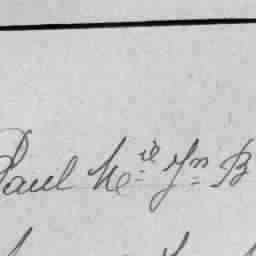 Paul M.el Jn B